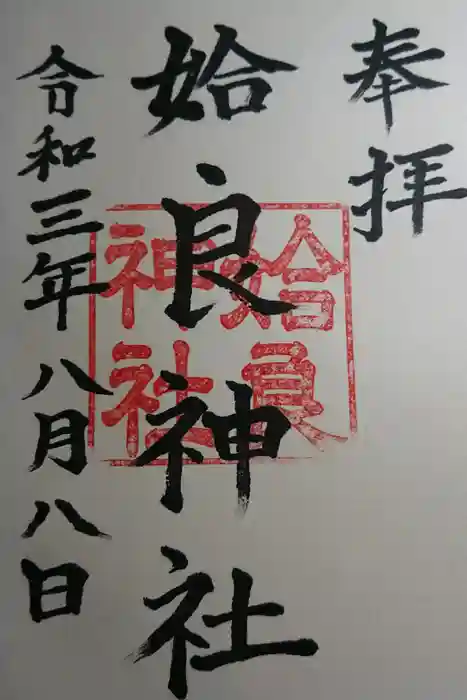 奉拝
姶良神社
令和三年八月八日
姶良
神社